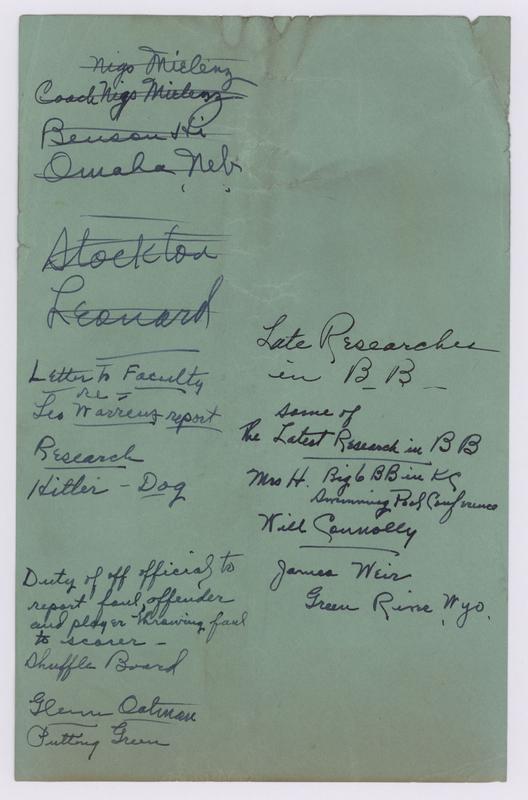 Nigs Mielenz
Coach Nigs Mielenz
Benson Hi
Omaha Neb.
Stockton
Leonard
Letter to Faculty
re =
Leo Warrens report
Research
Hitler - Dog
Duty of off official to
report foul, offender
and player throwing foul
to scorer -
Shuffle Board
Glenn Oatman
Putting Green
Late Researches
in B B
some of
the Latest Research in BB
Mrs H. Big 6 BB in KC
Swimming Pool Conference
Will Connolly
James Weir
Green River, Wyo.